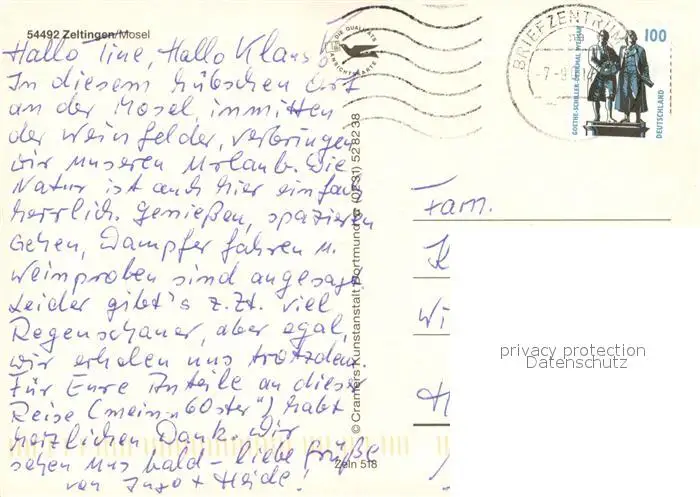 54492 Zeltingen/Mosel
Hallo Tine, Hallo Klaus
In diesem hübschen Ort
an der Mosel, inmitten
der Weinfelder, verbringen
wir unseren Urlaub. Die
Natur ist auch hier einfach
herrlich. Genießen, spazieren
gehen, Dampfer fahren u.
Weinproben sind angesagt.
Leider gibt's z.Zt. viel
Regenschauer, aber egal,
wir erholen uns trotzdem.
Für Eure Anteile an dieser
Reise (mein „60ster") habt
herzlichen Dank. Wir
sehen uns bald – liebe Grüße
von Ingo + Heide!
DIE QUALITÄTS
ANSICHTSKARTE
© Cramers Kunstanstalt Dortmund (0231) 52 82 38
Zeln 518
BRIEFZENTRUM
GOETHE-SCHILLER-DENKMAL WEIMAR
100
DEUTSCHLAND
Fam.
K
Wi
H
privacy protection
Datenschutz